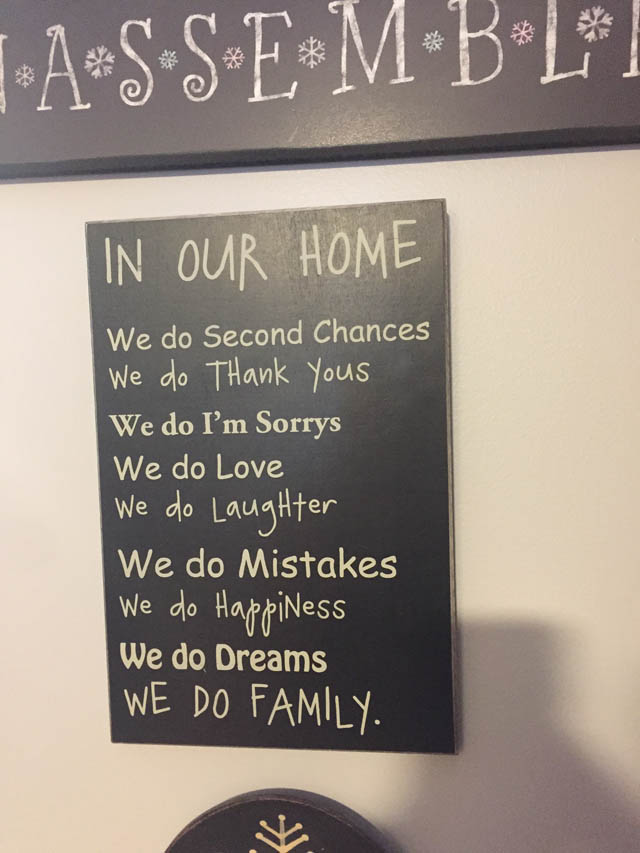 ASSEMBL
IN OUR HOME
We do Second Chances
We do THank Yous
We do I'm Sorrys
We do Love
We do LaugHter
We do Mistakes
We do HappiNess
We do Dreams
WE DO FAMILY.